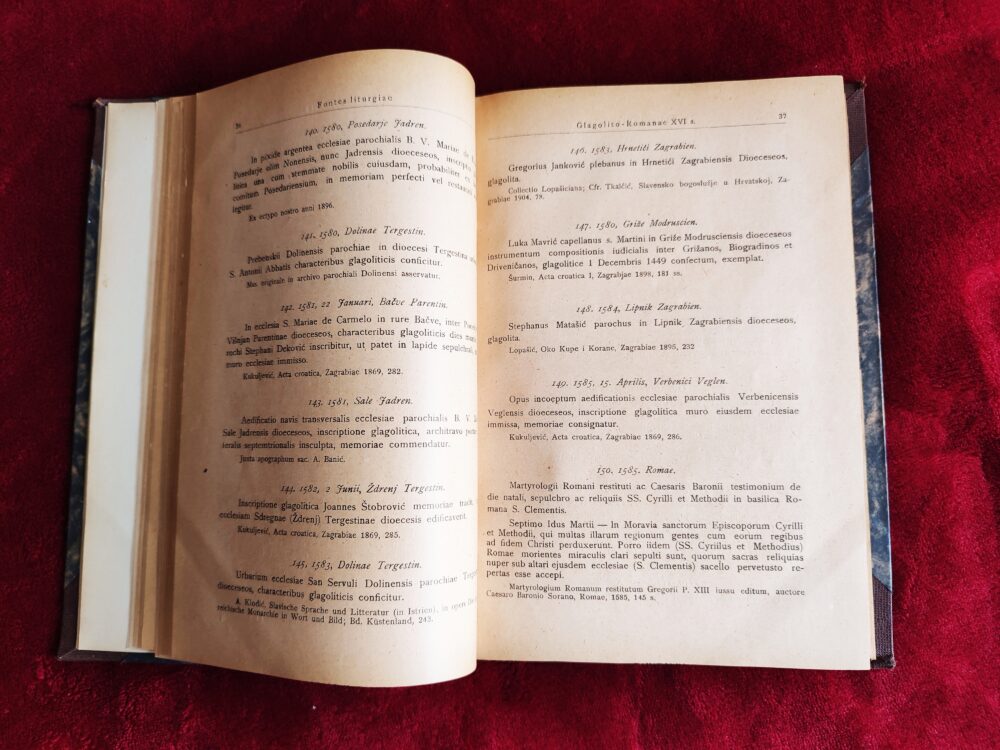 Fontes liturgiae
140. 1580, Posedarje Jadren.
In pixide argentea ecclesiae parochialis B. V. Mariae de
Posedarje olim Nonensis, nunc Jadrensis dioeceseos, inscriptio
linea una com stemmate nobilis cuiusdam, probabiliter ex
comitum Posedariensium, in memoriam perfecti vel restaurati
legitur.
Ex ectypo nostro anni 1896.
141. 1580, Dolinae Tergestin.
Prebenskii Dolinensis parochiae in dioecesi Tergestina
S. Antonii Abbatis characteribus glagoliticis conficitur.
Mus originale in archivo parochiali Dolinensi asservatur.
142. 1581, 22 Januari, Bačve Parentin.
In ecclesia S. Mariae de Carmelo in rure Bačve, inter
Višnjan Parentinae dioeceseos, characteribus glagoliticis dies
rochi Stephani Deković inscribitur, ut patet in lapide sepulchrali,
muro ecclesiae immisso.
Kukuljević, Acta croatica, Zagrabiae 1869, 282.
143. 1581, Sale Jadren.
Aedificatio navis transversalis ecclesiae parochialis B. V.
Sale Jadrensis dioeceseos, inscriptione glagolitica, architravo
teralis septemtrionalis insculpta, memoriae commendatur.
Juxta apographum sac. A. Banić.
144. 1582, 2 Junii, Ždrenj Tergestin.
Inscriptione glagolitica Joannes Štobrović memoriae
ecclesiam Sdregnae (Ždrenj) Tergestinae dioecesis edificavent.
Kukuljević, Acta croatica, Zagrabiae 1869, 285.
145, 1583, Dolinae Tergestin.
Urbarium ecclesiae San Servuli Dolinensis parochiae
dioeceseos, characteribus glagoliticis conficitur.
A. Klodič, Slavische Sprache und Litteratur (in Istrien), in opere
reichische Monarchie in Wort und Bild; Bd. Küstenland, 243.
Glagolito-Romanae XVI s.
37
146. 1583, Hrnetići Zagrabien.
Gregorius Janković plebanus in Hrnetići Zagrabiensis Dioeceseos,
glagolita.
Collectio Lopašiciana; Cfr. Tkalčić, Slavensko bogoslužje u Hrvatskoj, Za-
grabiae 1904, 78.
147. 1580, Griže Modruscien.
Luka Mavrić capellanus s. Martini in Griže Modrusciensis dioeceseos
instrumentum compositionis iudicialis inter Grižanos, Biogradinos et
Driveničanos, glagolitice 1 Decembris 1449 confectum, exemplat.
Šurmin, Acta croatica I, Zagrabjae 1898, 181 ss.
148. 1584, Lipnik Zagrabien.
Stephanus Matašić parochus in Lipnik Zagrabiensis dioeceseos,
glagolita.
Lopašić, Oko Kupe i Korane, Zagrabiae 1895, 232
149. 1585, 15. Aprilis, Verbenici Veglen.
Opus incoeptum aedificationis ecclesiae parochialis Verbenicensis
Veglensis dioeceseos, inscriptione glagolitica muro eiusdem ecclesiae
immissa, memoriae consignatur.
Kukuljević, Acta croatica, Zagrabiae 1869, 286.
150. 1585. Romae.
Martyrologii Romani restituti ac Caesaris Baronii testimonium de
die natali, sepulchro ac reliquiis SS. Cyrilli et Methodii in basilica Ro-
mana S. Clementis.
Septimo Idus Martii — In Moravia sanctorum Episcoporum Cyrilli
et Methodii, qui multas illarum regionum gentes cum eorum regibus
ad fidem Christi perduxerunt. Porro iidem (SS. Cyriilus et Methodius)
Romae morientes miraculis clari sepulti sunt, quorum sacras reliquias
nuper sub altari ejusdem ecclesiae (S. Clementis) sacello pervetusto re-
pertas esse accepi.
Martyrologium Romanum restitutum Gregorii P. XIII iussu editum, auctore
Caesaro Baronio Sorano, Romae, 1585, 145 s.